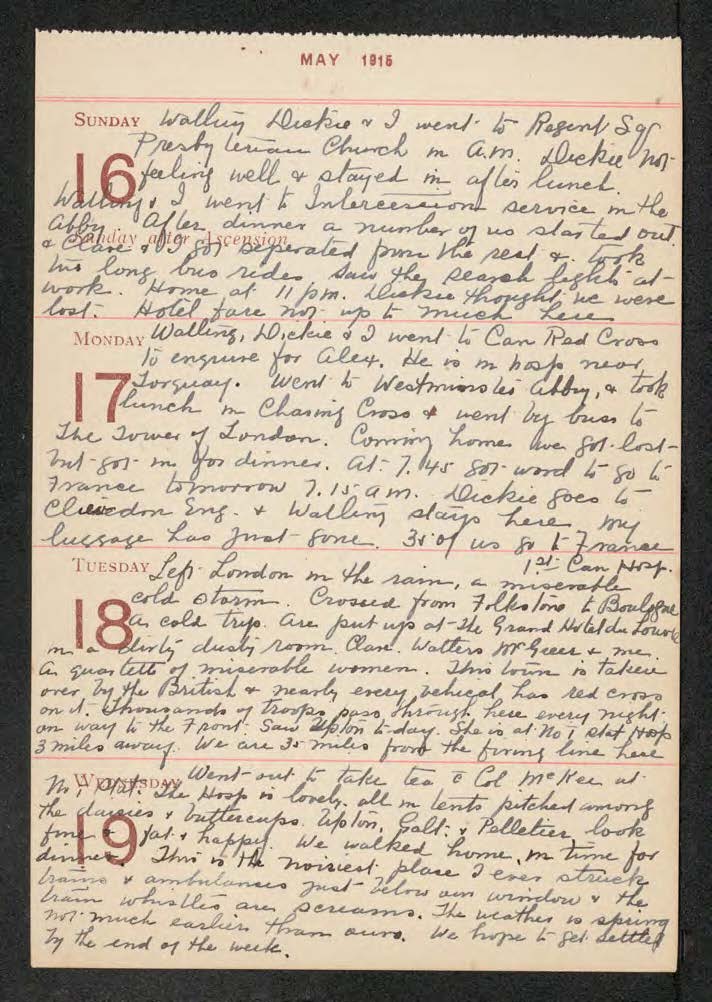 MAY 1915
SUNDAY Walling Dickie & I went to Regent Sqr
16 Presbyterian Church in a.m. Dickie not
feeling well & stayed in after lunch.
Walling & I went to Intercession service in the
Abby. After dinner a number of us started out
Sunday after Ascension
& Clare & I got seperated from the rest & took
two long bus rides saw the search lights at
work. Home at 11 p.m. Dickie thought we were
lost. Hotel fare not up to much here
MONDAY Walling, Dickie & I went to Can Red Cross
17 to enquire for Alex. He is in hosp near
Torquay. Went to Westminster Abby, & took
lunch in Charing Cross & went by buss to
The Tower of London. Coming home we got lost
but got in for dinner. At 7.45 got word to go to
France tomorrow 7.15 a m. Dickie goes to
Clivedon Eng. & Walling stays here. My
luggage has just gone. 35 of us go to France
1st Can Hosp.
TUESDAY Left London in the rain, a miserable
18 cold storm. Crossed from Folkstone to Boulogne
a cold trip. Are put up at The Grand Hotel du Louvre
in a dirty dusty room. Clare. Watters McGeer & me.
a quartett of miserable women. This town is taken
over by the British & nearly every vehical has red cross
on it. Thousands of troops pass through here every night
on way to the Front. Saw Upton to-day. She is at No 1 Stat Hosp
3 miles away. We are 35 miles from the firing line here
WEDNESDAY Went out to take tea c Col McKee at
19 No 1 Stat. The Hosp is lovely. all in tents pitched among
the daisies & buttercups. Upton, Galt & Pelletier look
fine & fat & happy. We walked home in time for
dinner. This is the noiriest place I ever struck
trains & ambulances just below our window & the
train whistles are screams. The weather is spring
not much earlier than ours. We hope to get settled
by the end of the week.